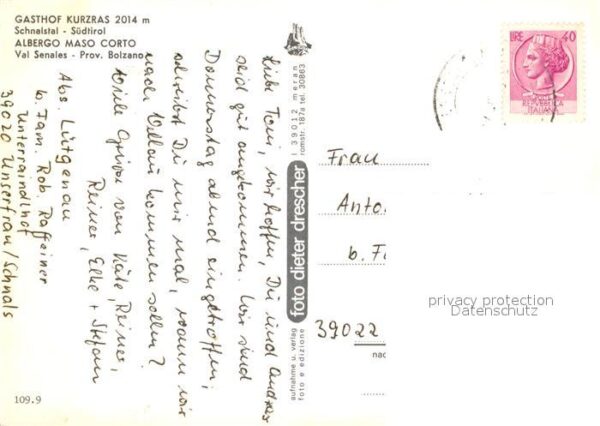 GASTHOF KURZRAS 2014 m
Schnalstal - Südtirol
ALBERGO MASO CORTO
Val Senales - Prov. Bolzano
Liebe Toni, wir hoffen, Du und Andreas
seid gut angekommen. Wir sind
Donnerstag abend eingetroffen;
schreibst Du mir mal, wann wir
nach kommen sollen?
Viele Grüße von Käte, Reiner,
Reiner, Elke + Stefan
Abs. Lütgenau
b. Fam. Rob. Raffeiner
Unterraindlhof
39020 Unserfrau/Schnals
109.9
I 39012 meran
romstr. 187a tel. 30863
foto dieter drescher
aufnahme u. verlag
foto e edizione
LIRE 40
REPUBBLICA
ITALIANA
Frau
Anto
b. Fa
39022
nac
privacy protection
Datenschutz